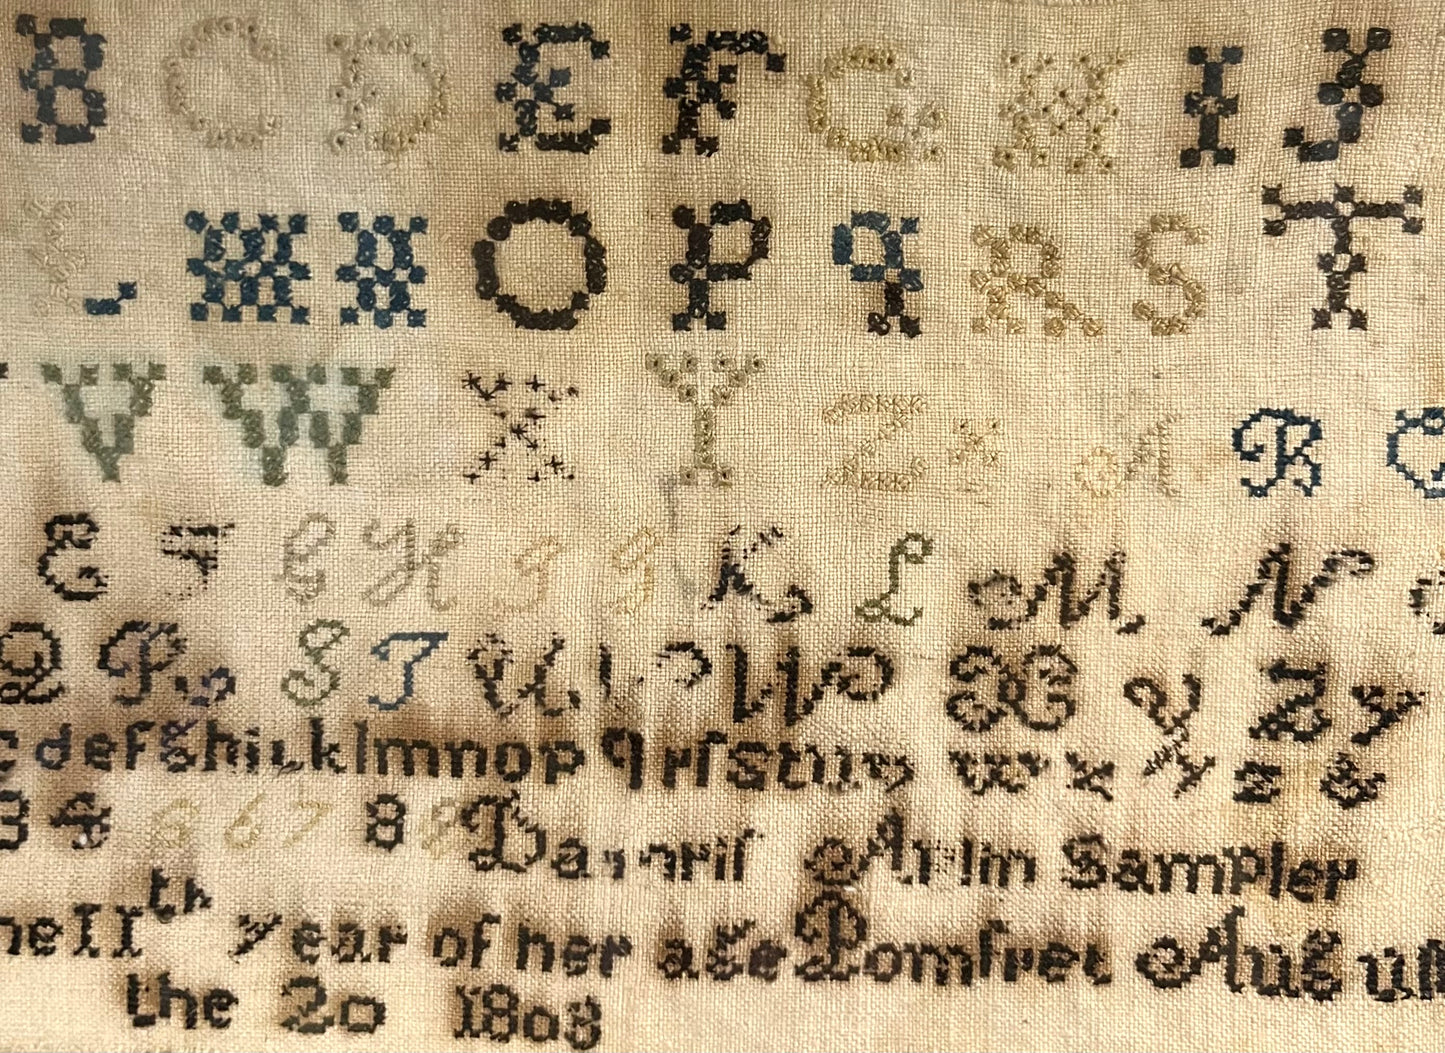 B C D E F G H I J
L M N O P q R S T
V W X Y Z A B C
E F G H I J K L M N
Q R S T U V W X Y Z y
c d e f g h i k l m n o p q r ſ s t u v w x y z &
3 4 5 6 7 8 9 Damaris Arlin Sampler
he 11th year of her age Pomfret Augu
the 20 1803